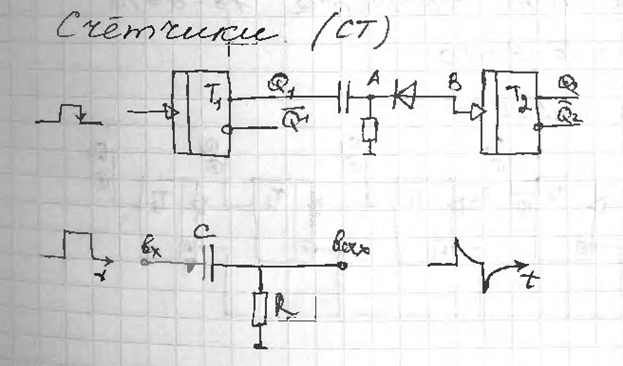 Счётчики (СТ)
T1 Q1 A B T2 Q2
Q̅1 Q̅2
Вх C Вых
t R t